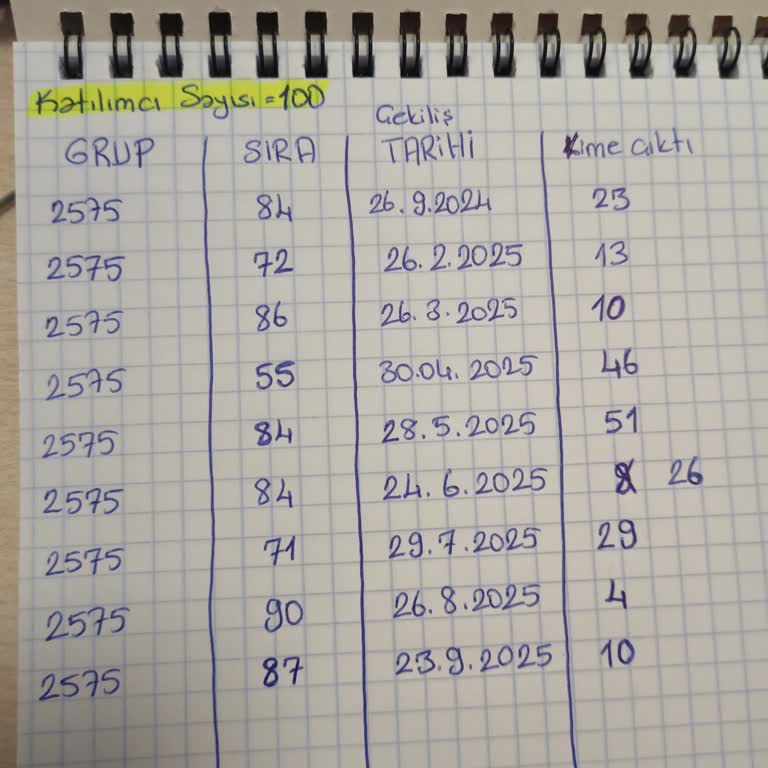 Katılımcı Sayısı = 100
Çekiliş
GRUP SIRA TARİHİ Kime çıktı
2575 84 26.9.2024 23
2575 72 26.2.2025 13
2575 86 26.3.2025 10
2575 55 30.04.2025 46
2575 84 28.5.2025 51
2575 84 24.6.2025 26
2575 71 29.7.2025 29
2575 90 26.8.2025 4
2575 87 23.9.2025 10